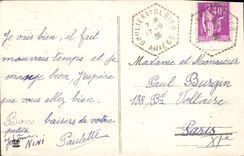 Je vais bien, il fait
mauvais temps et je
mange bien. J'espère
que vous allez bien.
Bons baisers de votre
petite
Paulette
NINI
ARIÈGE
40
Madame et Monsieur
Paul Burgin
138, Bd Voltaire
Paris
XIe